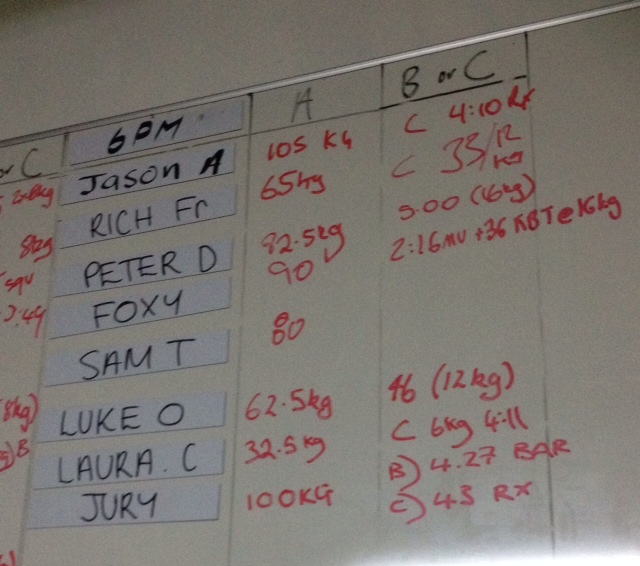 or C 6PM A B or C
Jason A 105 KG C 4:10 RX
RICH Fr 65kg C 33/12 kg
8kg PETER D 82.5kg 5.00 (16kg)
FOXY 90 2:16 MU + 36 KBT@16kg
SAM T 80
8kg) LUKE O 62.5kg 46 (12kg)
B LAURA. C 32.5kg C 6kg 4:11
JURY 100KG B) 4.27 BAR
C) 43 RX